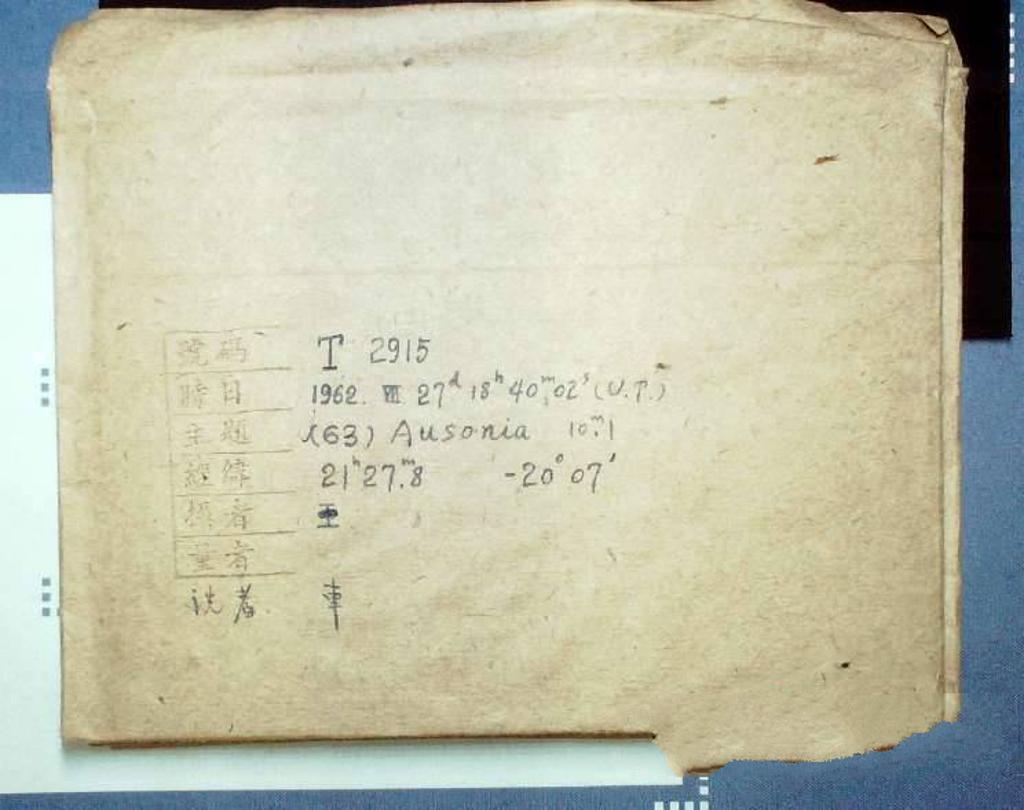 號碼 T 2915
時日 1962. Ⅶ 27ᵈ 18ʰ 40ᵐ.02ˢ (U.T.)
主題 (63) Ausonia 10ᵐ.1
經緯 21ʰ27ᵐ.8 -20°07′
攝者
量者
洗者. 車